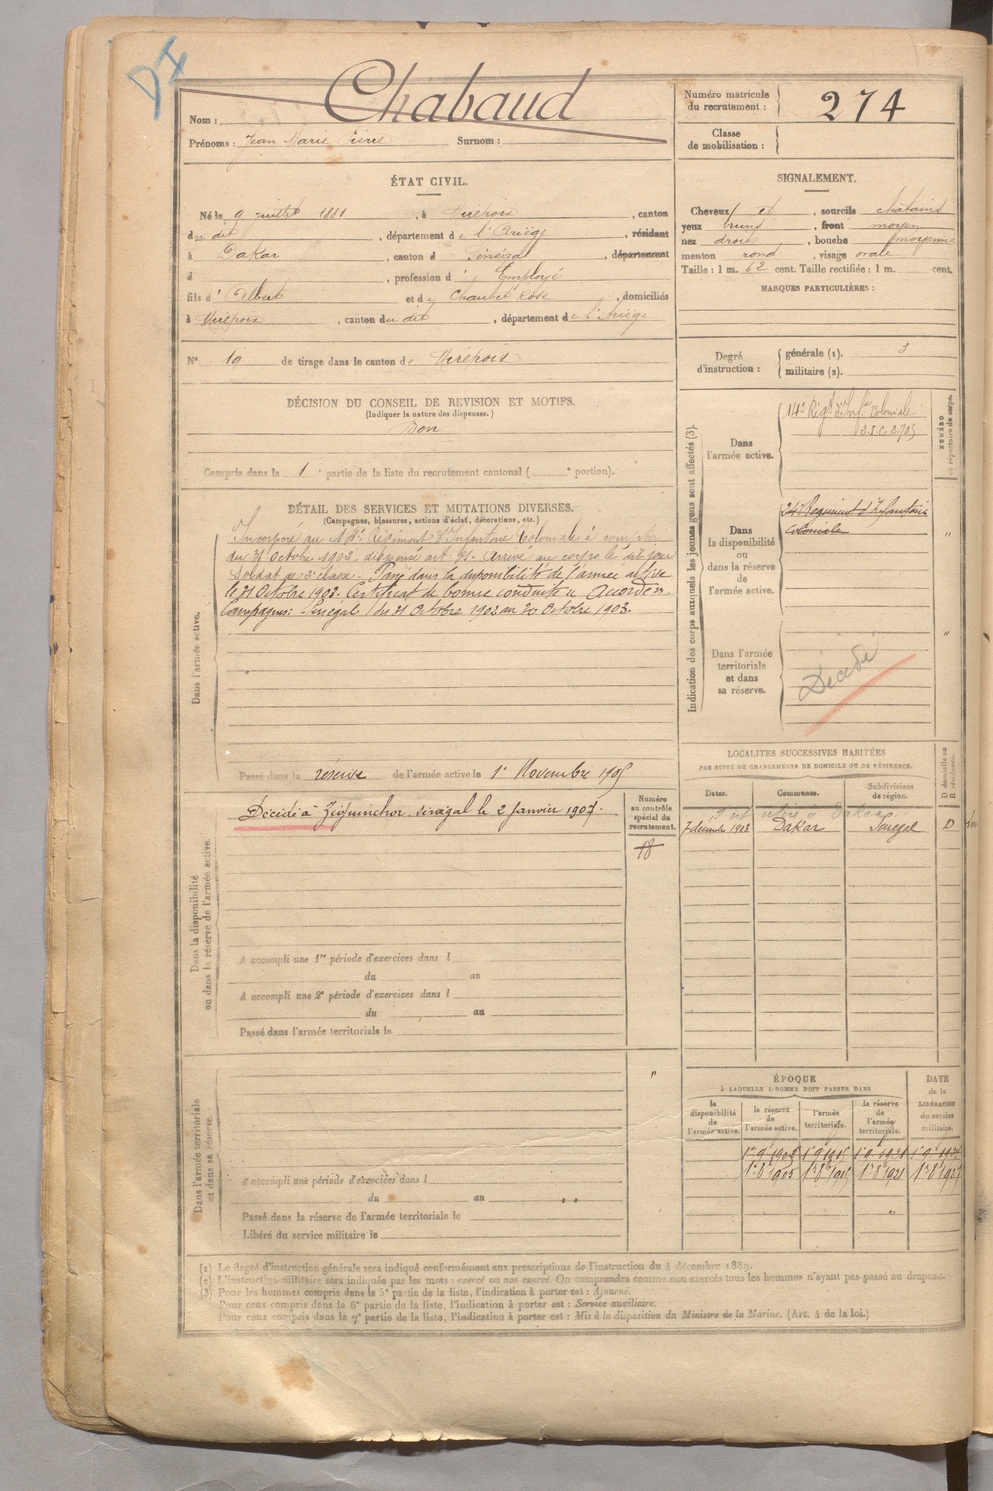 DI
Nom : Chabaud
Prénoms : Jean Marie Pierre Surnom :
Numéro matricule du recrutement : 274
Classe de mobilisation :
ÉTAT CIVIL.
Né le 9 juillet 1881, à Mirepoix, canton
du dit, département de l'Ariège, résidant
à Dakar, canton d Sénégal, département
d , profession d' Employé
fils d' Albert et de Chaubet Rose, domiciliés
à Mirepoix, canton du dit, département de l'Ariège
N° 19 de tirage dans le canton de Mirepoix
SIGNALEMENT.
Cheveux et, sourcils châtains
yeux bruns, front moyen
nez droit, bouche moyenne
menton rond, visage ovale
Taille : 1 m. 62 cent. Taille rectifiée : 1 m. cent.
MARQUES PARTICULIÈRES :
Degré d'instruction : générale (1). 3
militaire (2).
DÉCISION DU CONSEIL DE REVISION ET MOTIFS.
(Indiquer la nature des dispenses.)
Bon
Compris dans la 1e partie de la liste du recrutement cantonal ( e portion).
DÉTAIL DES SERVICES ET MUTATIONS DIVERSES.
(Campagnes, blessures, actions d'éclat, décorations, etc.)
Dans l'armée active.
Incorporé au Régiment d'Infanterie Coloniale à compter
du 21 Octobre 1902, dispensé art. Arrivé au corps le dit jour
Soldat de 2e classe. Passé dans la disponibilité de l'armée active
le 21 Octobre 1903. Certificat de bonne conduite « Accordé ».
Campagnes : Sénégal du 21 Octobre 1902 au 20 Octobre 1903.
Passé dans la réserve de l'armée active le 1er Novembre 1905
Indication des corps auxquels les jeunes gens sont affectés (3).
NUMÉRO au répertoire du corps.
Dans l'armée active.
14e Régt d'Infie Coloniale
Dans la disponibilité ou dans la réserve de l'armée active.
24e Régiment d'Infanterie
Coloniale
"
Dans l'armée territoriale et dans sa réserve.
Décédé
"
Dans la disponibilité ou dans la réserve de l'armée active.
Décédé à Ziguinchor Sénégal le 2 Janvier 1907.
Numéro au contrôle spécial du recrutement.
18
A accompli une 1re période d'exercices dans l
du au
A accompli une 2e période d'exercices dans l
du au
Passé dans l'armée territoriale le
LOCALITÉS SUCCESSIVES HABITÉES
PAR SUITE DE CHANGEMENTS DE DOMICILE OU DE RÉSIDENCE.
Dates. Communes. Subdivisions de région. D domicile ou R résidence.
7 décembre 1903 Dakar Sénégal D
Dans l'armée territoriale et dans sa réserve.
"
A accompli une période d'exercices dans l
du au
Passé dans la réserve de l'armée territoriale le
Libéré du service militaire le
ÉPOQUE
À LAQUELLE L'HOMME DOIT PASSER DANS
DATE de la LIBÉRATION du service militaire.
la disponibilité de l'armée active. la réserve de l'armée active. l'armée territoriale. la réserve de l'armée territoriale.
1er 8bre 1905 1er 8bre 1915 1er 8bre 1921 1er 8bre 1927
(1) Le degré d'instruction générale sera indiqué conformément aux prescriptions de l'instruction du 4 décembre 1889.
(2) L'instruction militaire sera indiquée par les mots : exercé ou non exercé. On comprendra comme non exercés tous les hommes n'ayant pas passé au drapeau.
(3) Pour les hommes compris dans la 5e partie de la liste, l'indication à porter est : Ajourné.
Pour ceux compris dans la 6e partie de la liste, l'indication à porter est : Service auxiliaire.
Pour ceux compris dans la 7e partie de la liste, l'indication à porter est : Mis à la disposition du Ministre de la Marine. (Art. 4 de la loi.)